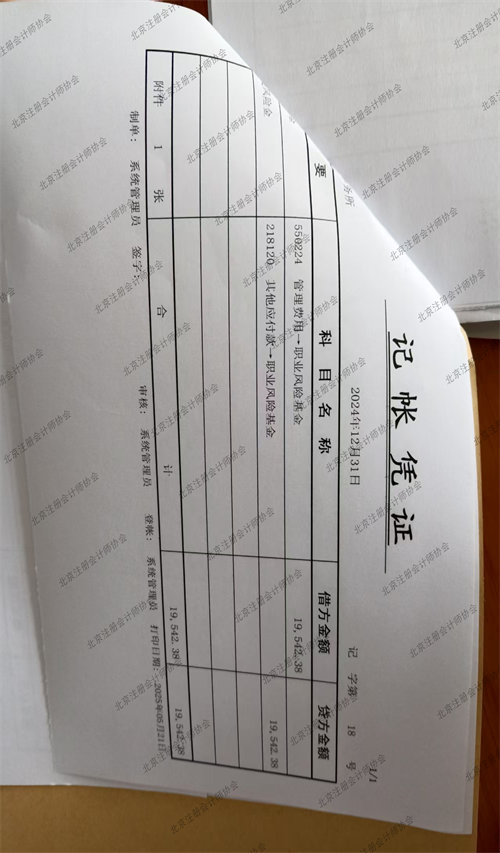 记帐凭证
1/1
务所 2024年12月31日 记 字第 18 号
要 科目名称 借方金额 贷方金额
550224 管理费用→职业风险基金 19,542.38
风险金 218120 其他应付款→职业风险基金 19,542.38
附件 1 张 合 计 19,542.38 19,542.38
制单: 系统管理员 签字: 审核: 系统管理员 登帐: 系统管理员 打印日期: 2025年05月21日
北京注册会计师协会